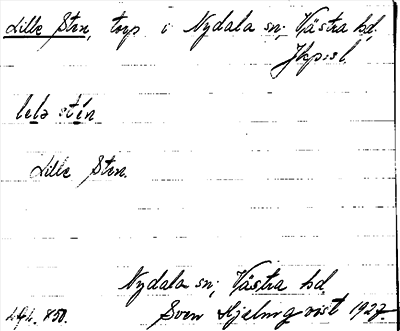 Lille Sten, torp i Nydala sn; Västra hd,
Jkp.sl.
lelə stén
Lille Sten.
Nydala sn; Västra hd
Sven Hjelmqvist 1927.